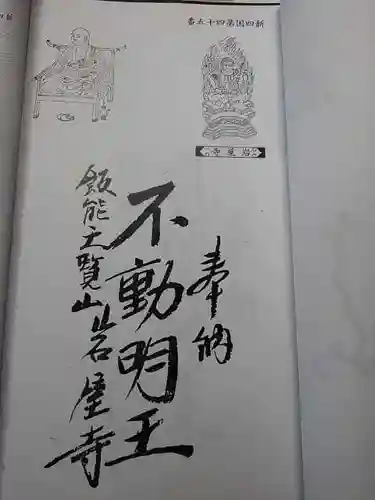 番五十四第国四新
寺屋岩
奉納
不動明王
飯能天覧山岩屋寺